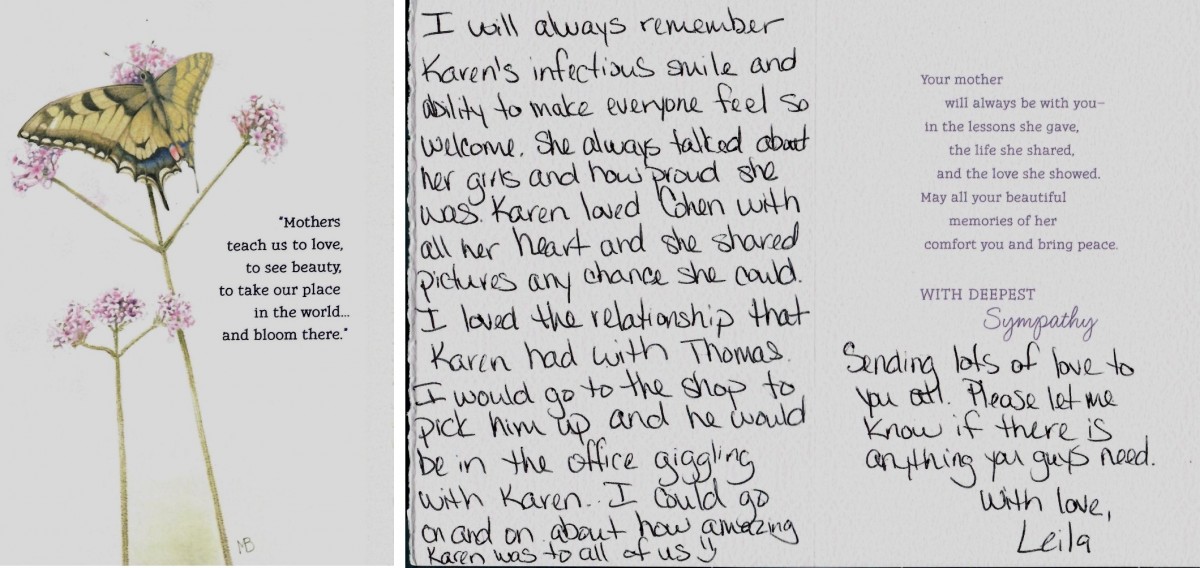 "Mothers
teach us to love,
to see beauty,
to take our place
in the world...
and bloom there."
MB
I will always remember
Karen's infectious smile and
ability to make everyone feel so
welcome. She always talked about
her girls and how proud she
was. Karen loved Cohen with
all her heart and she shared
pictures any chance she could.
I loved the relationship that
Karen had with Thomas.
I would go to the shop to
pick him up and he would
be in the office giggling
with Karen. I could go
on and on about how amazing
Karen was to all of us
Your mother
will always be with you–
in the lessons she gave,
the life she shared,
and the love she showed.
May all your beautiful
memories of her
comfort you and bring peace.
WITH DEEPEST
Sympathy
Sending lots of love to
you all. Please let me
know if there is
anything you guys need.
With love,
Leila